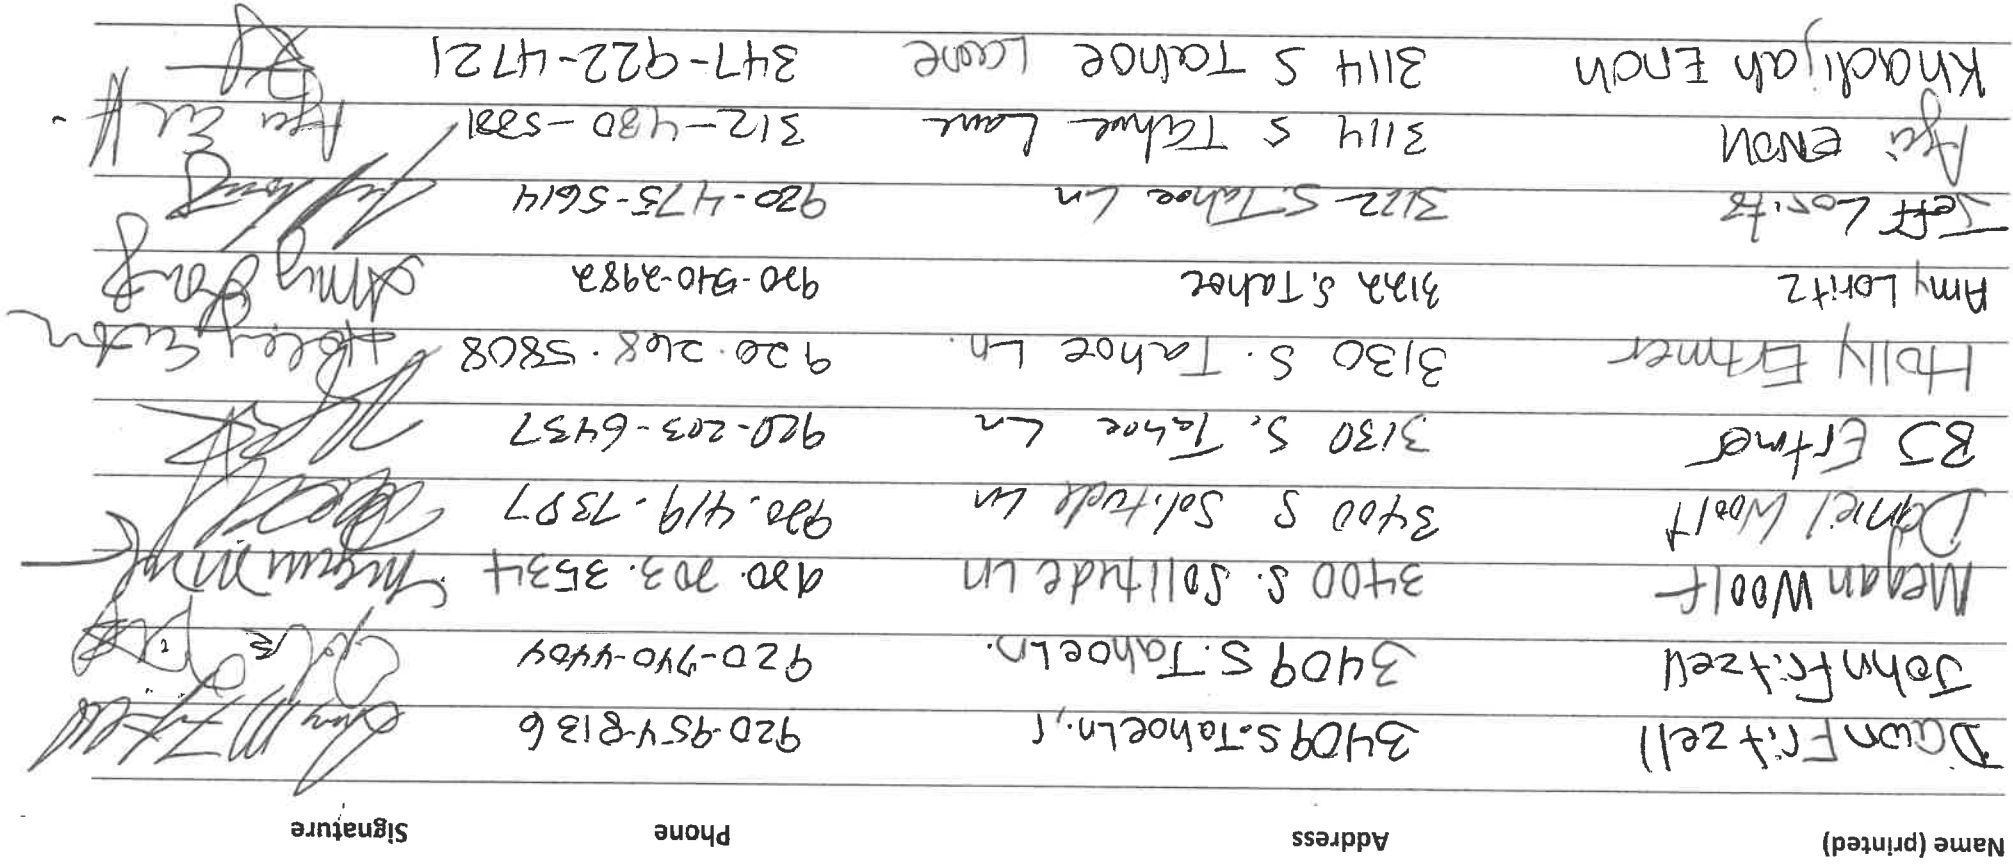 Name (printed) Address Phone Signature
Dawn Fritzell 3409 S. Tahoe Ln., 920-954-8136
John Fritzell 3409 S. Tahoe Ln. 920-740-4404
Megan Woolf 3400 S. Sollitude Ln 920.703.3534
Daniel Woolf 3400 S Solitude Ln 920.419.7387
BJ Ertmer 3130 S. Tahoe Ln 920-203-6437
Holly Ertmer 3130 S. Tahoe Ln. 920.268.5808 Holly Ertmer
Amy Loritz 3122 S. Tahoe 920-540-2982 Amy Loritz
Jeff Loritz 3122 S. Tahoe Ln 920-475-5614
3114 S Tahoe Lane
Khadijah Enoh 3114 S Tahoe Lane 347-922-4721